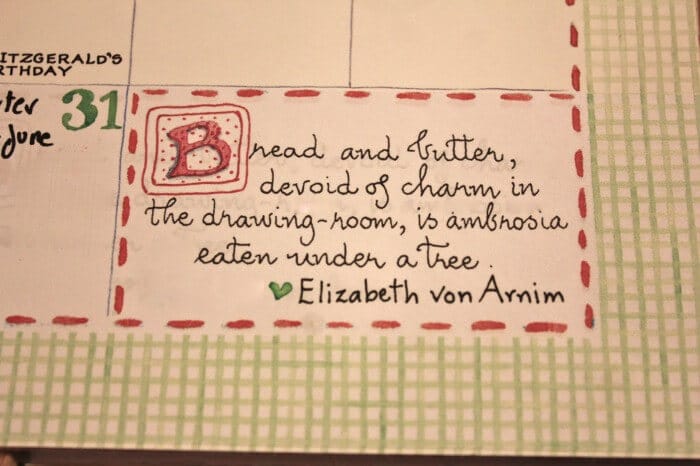 ITZGERALD'S
RTHDAY
31
June
Bread and butter,
devoid of charm in
the drawing-room, is ambrosia
eaten under a tree.
Elizabeth von Arnim